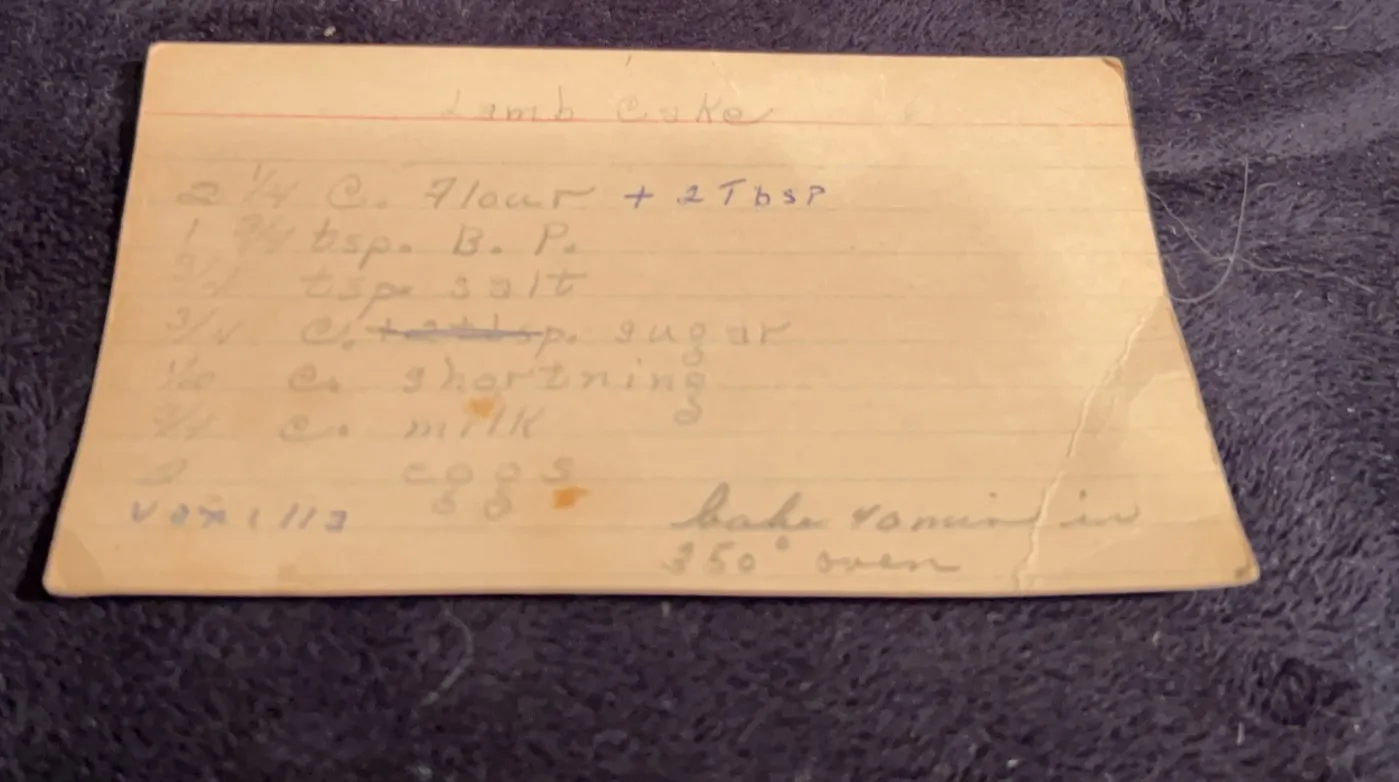 Lamb Cake
2 1/4 C. Flour + 2 Tbsp
1 3/4 tsp. B. P.
tsp. salt
3/4 c. sugar
c. shortning
3/4 c. milk
eggs
bake 40 min in
350° oven